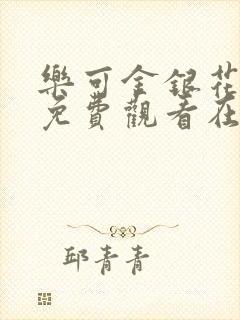 樂可金銀花
免費觀看在
邱青青